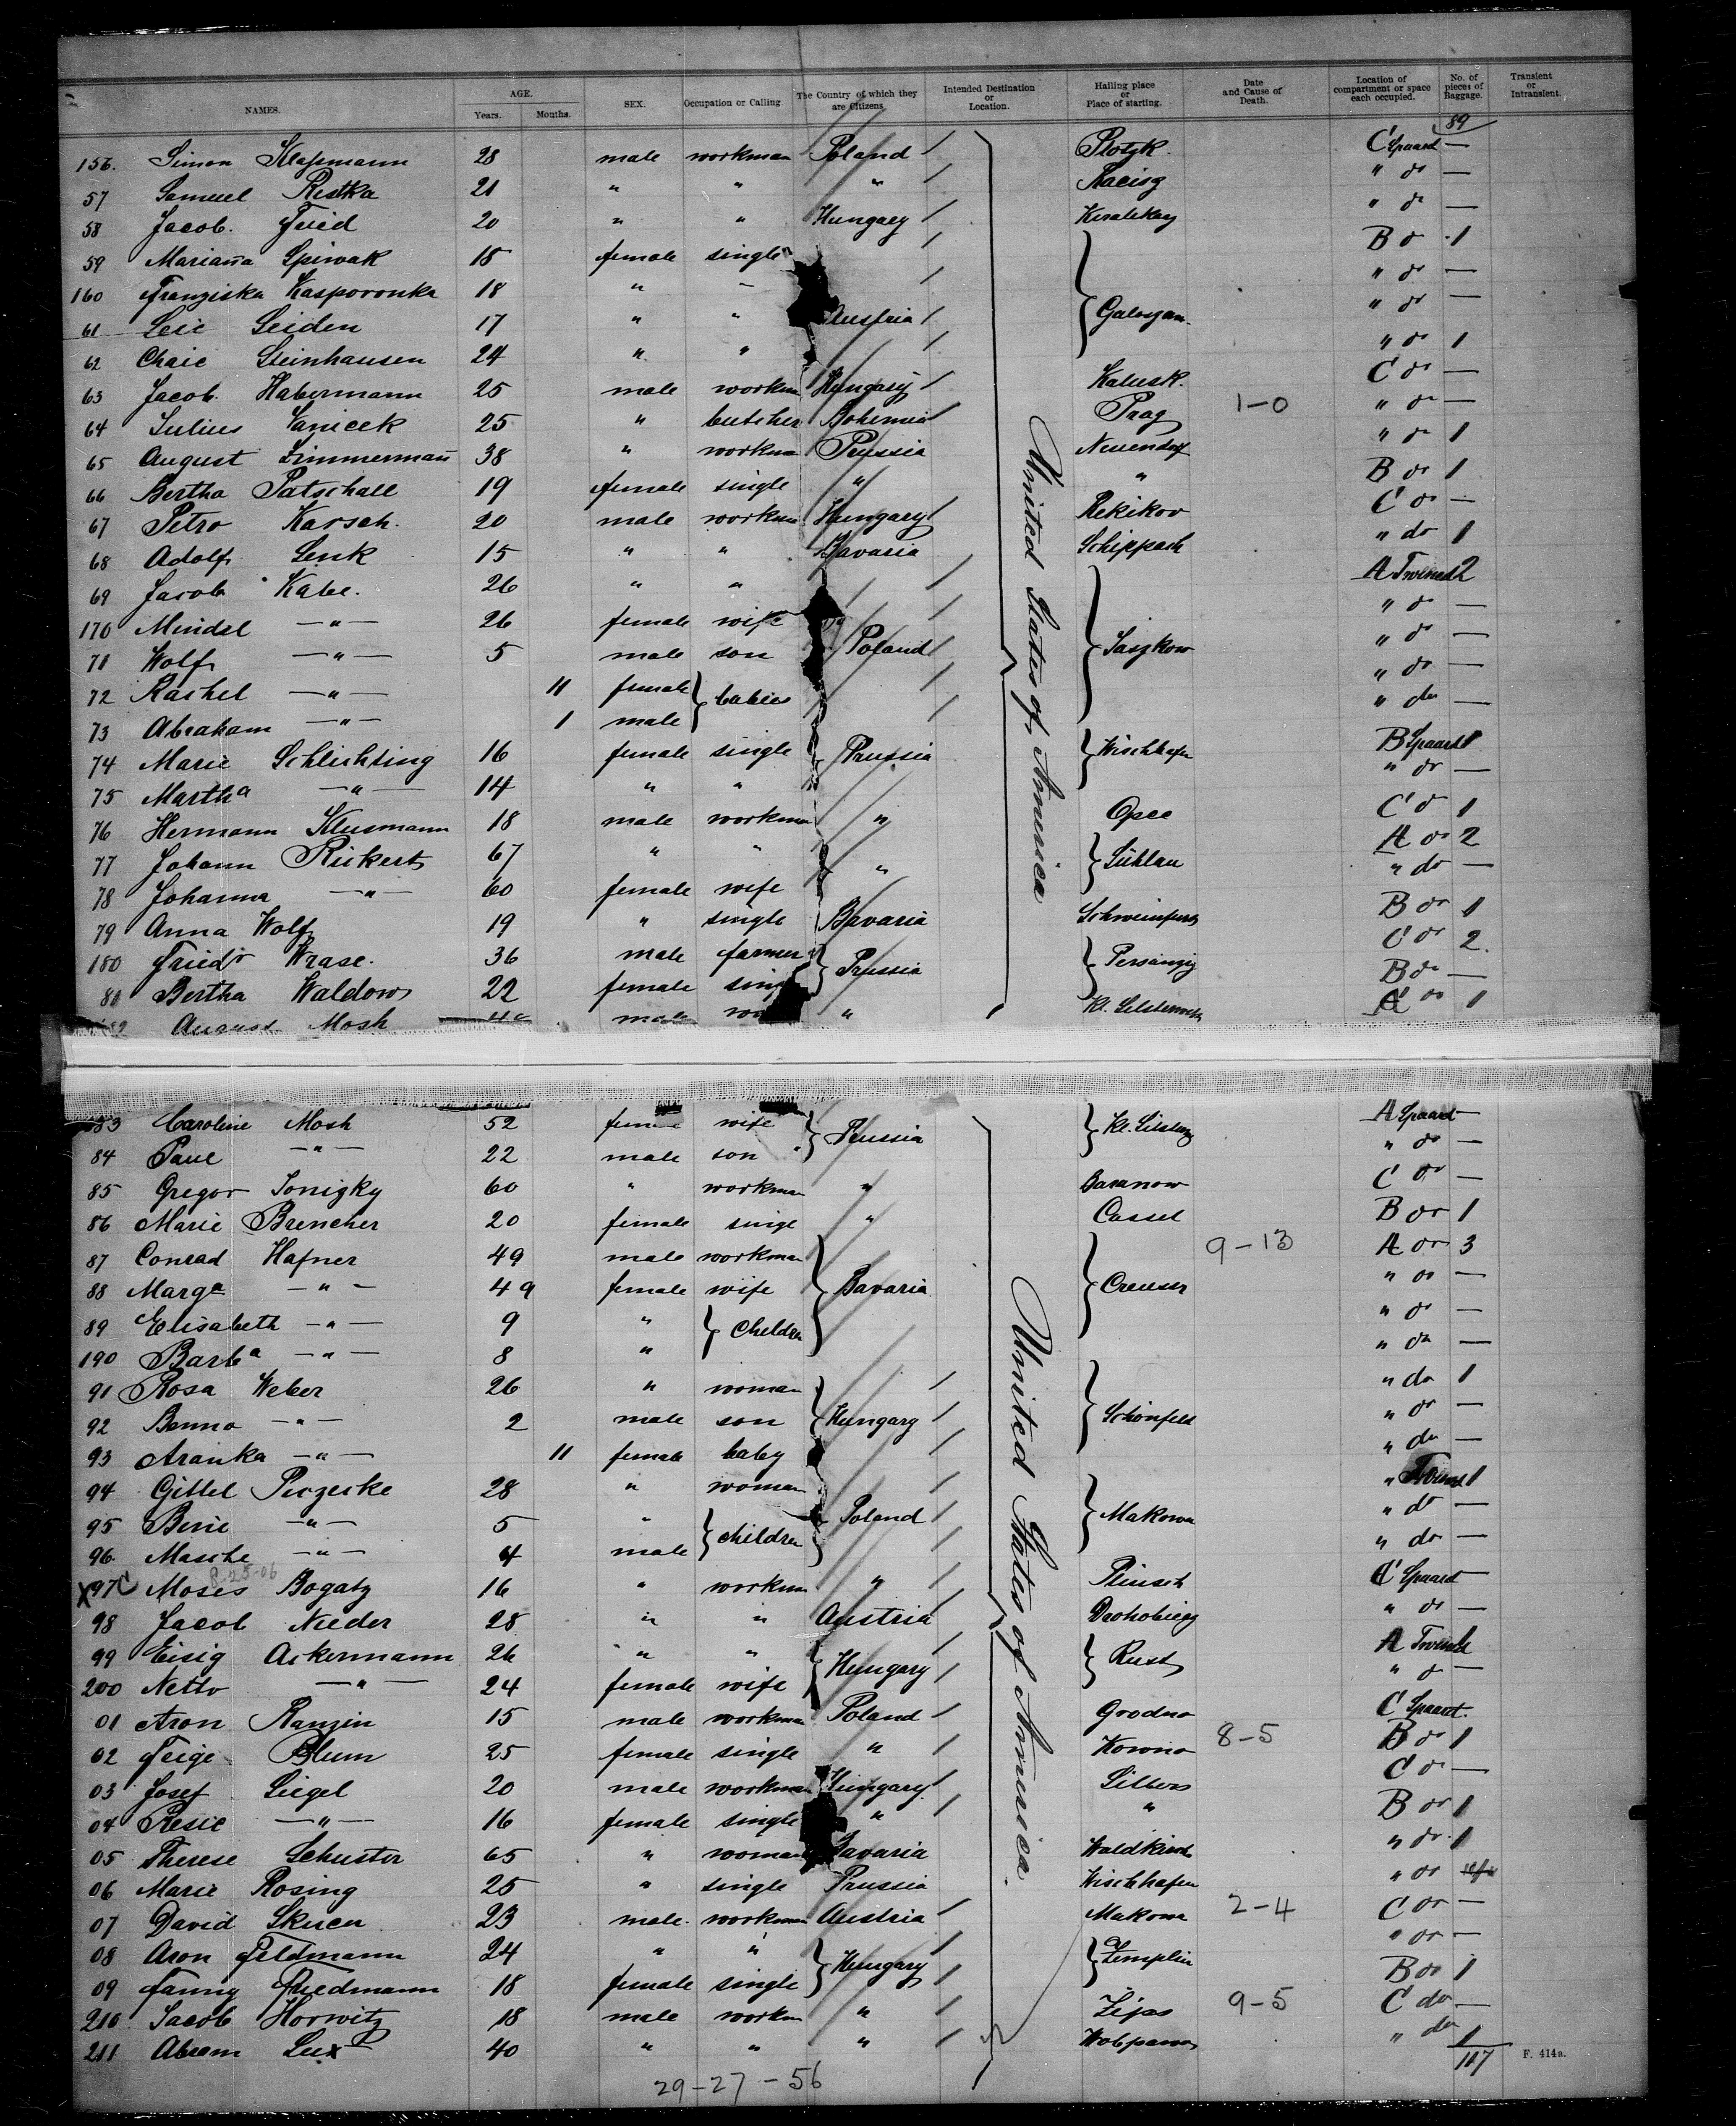 NAMES. AGE. Years. Months. SEX. Occupation or Calling. The Country of which they are Citizens. Intended Destination or Location. Hailing place or Place of starting. Date and Cause of Death. Location of compartment or space each occupied. No. of pieces of Baggage. Transient or Intransient.
89
156. Simon 28 male workman Poland / Plotzk C Spaard —
57 Samuel Restka 21 " " " / Racisz " do —
58 Jacob. Fried 20 " " Hungary / " do —
59 Marianna Spiwak 18 female single / B do 1
160 Franziska Kasporonka 18 " " / " do —
61 Leie Seiden 17 " " Austria / " do —
62 Chaie Steinhausen 24 " " / " do 1
63 Jacob. Habermann 25 male workm Hungary / Kalusk. C do —
64 Julius Vanicek 25 " butcher Bohemia / Prag 1-0 " do —
65 August Zimmermann 38 " workman Prussia Neuendorf " do 1
66 Bertha Patschall 19 female single " " B do 1
67 Petro Karsch. 20 male workm Hungary / Rekikov C do —
68 Adolf Lenk 15 " " Bavaria Schippach " do 1
69 Jacob Kabe. 26 " " / A Twined 2
170 Mindel —"— 26 female wife / " do —
71 Wolf —"— 5 male son Poland / Saszkow " do —
72 Rachel —"— 11 female babies / " do —
73 Abraham —"— 1 male / " do —
74 Marie Schlichting 16 female single Prussia Wischhafen B Spaard 1
75 Martha —"— 14 " " " do —
76 Hermann Klusmann 18 male workman " C do 1
77 Johann Rickert 67 " " A do 2
78 Johanna —"— 60 female wife " " do —
79 Anna Wolf 19 " single Bavaria Schweinfurth B do 1
180 Friedr Wrase. 36 male farmer Prussia Persanzig C do 2.
81 Bertha Waldow 22 female sing B do —
182 August Mosh male " C do 1
United States of America
183 Caroline Mosh 52 female wife Prussia A Spaard —
84 Paul —"— 22 male son " do —
85 Gregor Sonigky 60 " workman " Baranow C do —
86 Marie Brencher 20 female singl " Cassel B do 1
87 Conrad Hafner 49 male workman 9-13 A do 3
88 Marga —"— 49 female wife Bavaria Creuser " do —
89 Elisabeth —"— 9 " children " do —
190 Barba —"— 8 " " do —
91 Rosa Weber 26 " woman / " do 1
92 Benno —"— 2 male son Hungary / Schönfeld " do —
93 Aranka —"— 11 female baby / " do —
94 Gittel Piczeske 28 " woman / " Twined 1
95 Berie —"— 5 " children Poland / Makowa " do —
96. Masche —"— 4 male / " do —
R-25-06
X97 C Moses Bogatz 16 " workm " / Plinsch C Spaard —
98 Jacob Nieder 28 " " Austria / " do —
99 Eisig Ackermann 26 " " Hungary / Rust A Twined 1
200 Netto —"— 24 female wife / " do —
01 Aron Ranzin 15 male workman Poland / Grodno C Spaard.
02 Feige Blum 25 female single " / Kowno 8-5 B do 1
03 Josef Siegel 20 male workman Hungary / C do —
04 Resie —"— 16 female single " / " B do 1
05 Therese Schuster 65 " woman Bavaria Waldkirch " do. 1
06 Marie Rosing 25 " single Prussia Wischhafen " do
07 David Skurcu 23 male. workman Austria / Makowa 2-4 C do —
08 Aron Feldmann 24 " " Hungary / Zemplin " do —
09 Fanny Friedmann 18 female single / B do 1
210 Jacob Horwitz 18 male workm " / 9-5 C do —
211 Abram Lux 40 " " " / " do 1
United States of America.
117
F. 414a.
29-27-56